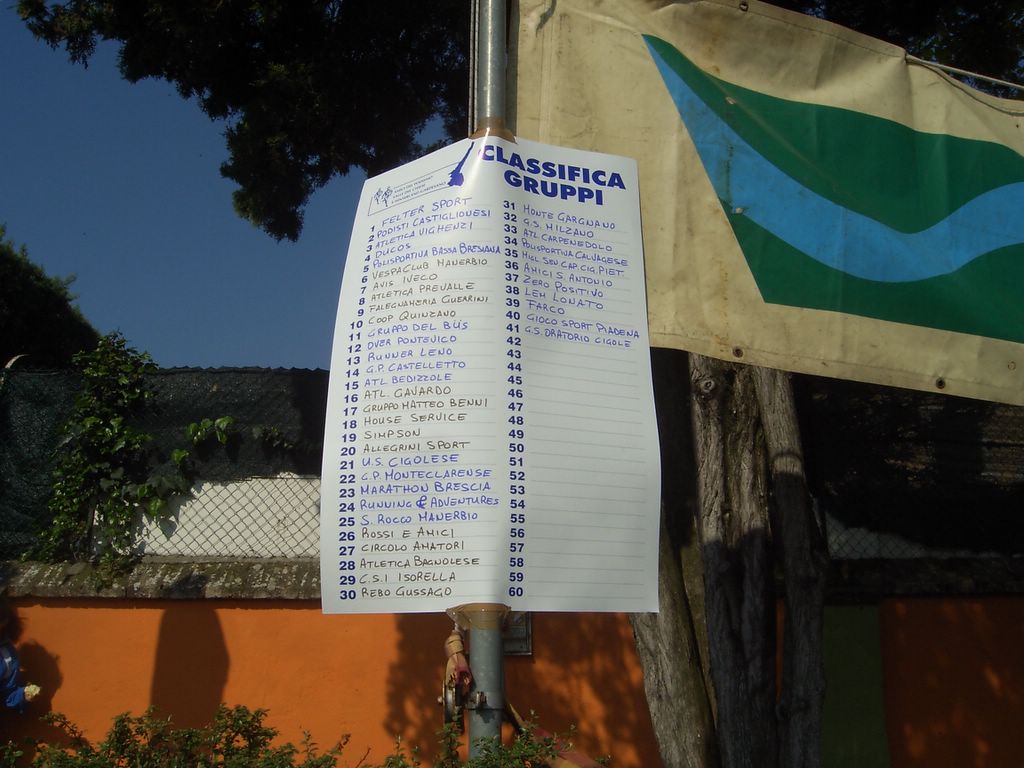 CLASSIFICA
GRUPPI
1 FELTER SPORT
2 PODISTI CASTIGLIONESI
3 ATLETICA VIGHENZI
4 DUCOS
5 POLISPORTIVA BASSA BRESIANA
6 VESPACLUB MANERBIO
7 AVIS IVECO
8 ATLETICA PREVALLE
9 FALEGNAMERIA GUERRINI
10 COOP QUINZANO
11 GRUPPO DEL BÚS
12 OVER PONTEVICO
13 RUNNER LENO
14 G.P. CASTELLETTO
15 ATL. BEDIZZOLE
16 ATL. GAVARDO
17 GRUPPO MATTEO BENNI
18 HOUSE SERVICE
19 SIMPSON
20 ALLEGRINI SPORT
21 U.S. CIGOLESE
22 G.P. MONTECLARENSE
23 MARATHON BRESCIA
24 RUNNING & ADVENTURES
25 S. ROCCO MANERBIO
26 ROSSI E AMICI
27 CIRCOLO AMATORI
28 ATLETICA BAGNOLESE
29 C.S.I ISORELLA
30 REBO GUSSAGO
31 MONTE GARGNANO
32 G.S. MILZANO
33 ATL CARPENEDOLO
34 POLISPORTIVA CALVAGESE
35 MIGL SEN CAP. CIG. PIET.
36 AMICI S. ANTONIO
37 ZERO POSITIVO
38 LEM LONATO
39 FARCO
40 GIOCO SPORT PIADENA
41 G.S. ORATORIO CIGOLE
42
43
44
45
46
47
48
49
50
51
52
53
54
55
56
57
58
59
60